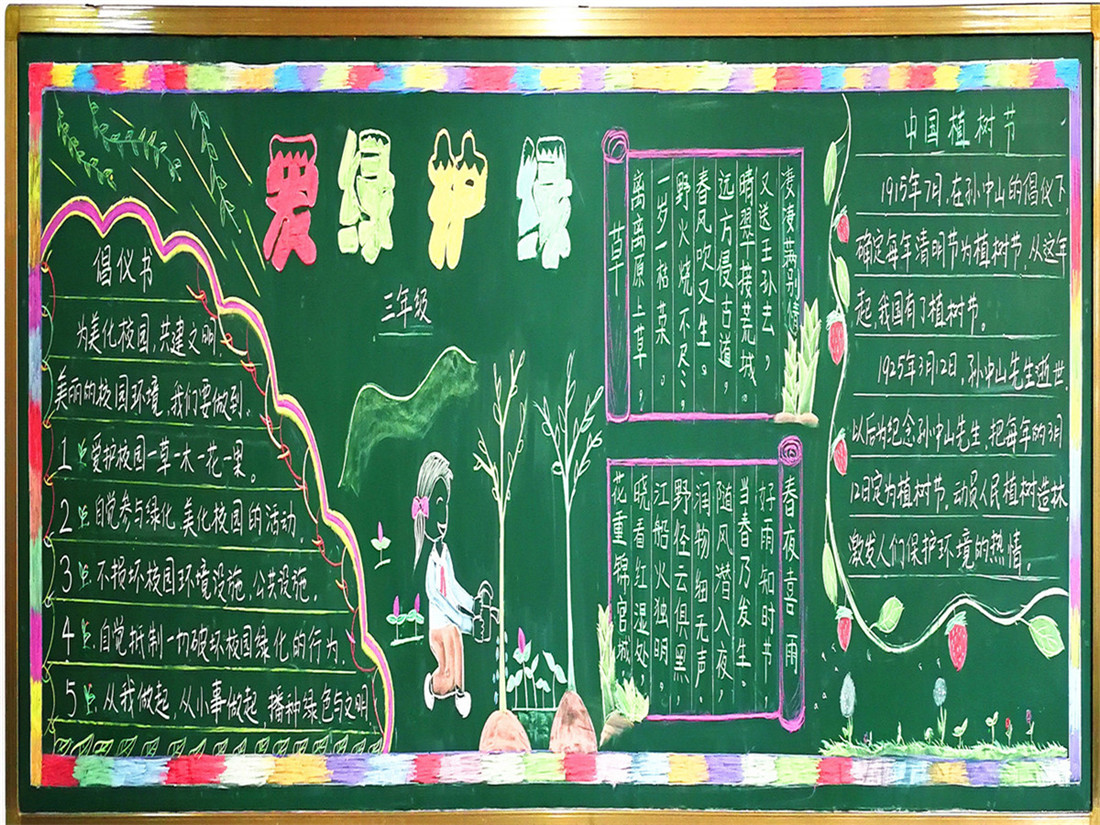 爱绿护绿
三年级
倡仪书
为美化校园,共建文明,
美丽的校园环境,我们要做到.
1 爱护校园一草一木一花一果。
2 自觉参与绿化,美化校园的活动.
3 不损坏校园环境设施,公共设施.
4 自觉抵制一切破坏校园绿化的行为.
5 从我做起,从小事做起,播种绿色与文明
草
离离原上草
一岁一枯荣。
野火烧不尽:
春风吹又生。
远方侵古道,
晴翠接荒城
又送王孙去,
凄凄满别情
春夜喜雨
好雨知时节
当春乃发生.
随风潜入夜,
润物细无声
野径云俱黑,
江船火独明
晓看红湿处,
花重锦官城
中国植树节
1915年7月,在孙中山的倡仪下,
确定每年清明节为植树节,从这年
起,我国有了植树节。
1925年3月12日,孙中山先生逝世.
以后为纪念孙中山先生,把每年的3月
12日定为植树节,动员人民植树造林
激发人们保护环境的热情.